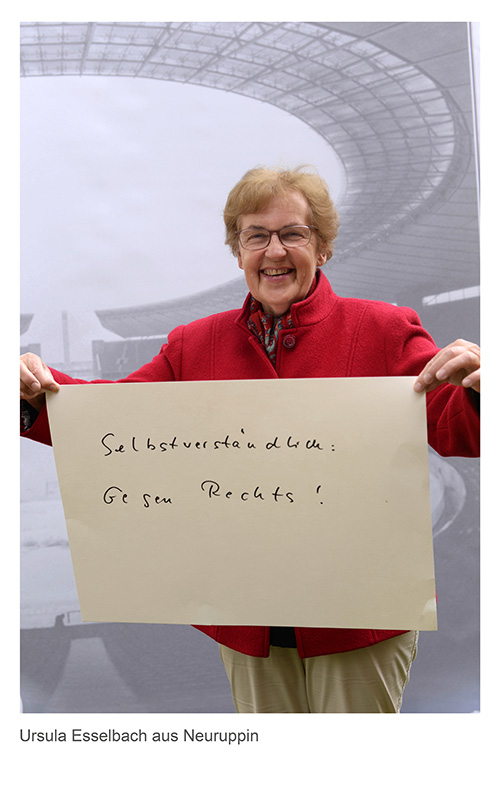 Selbstverständlich:
Gegen Rechts!
Ursula Esselbach aus Neuruppin